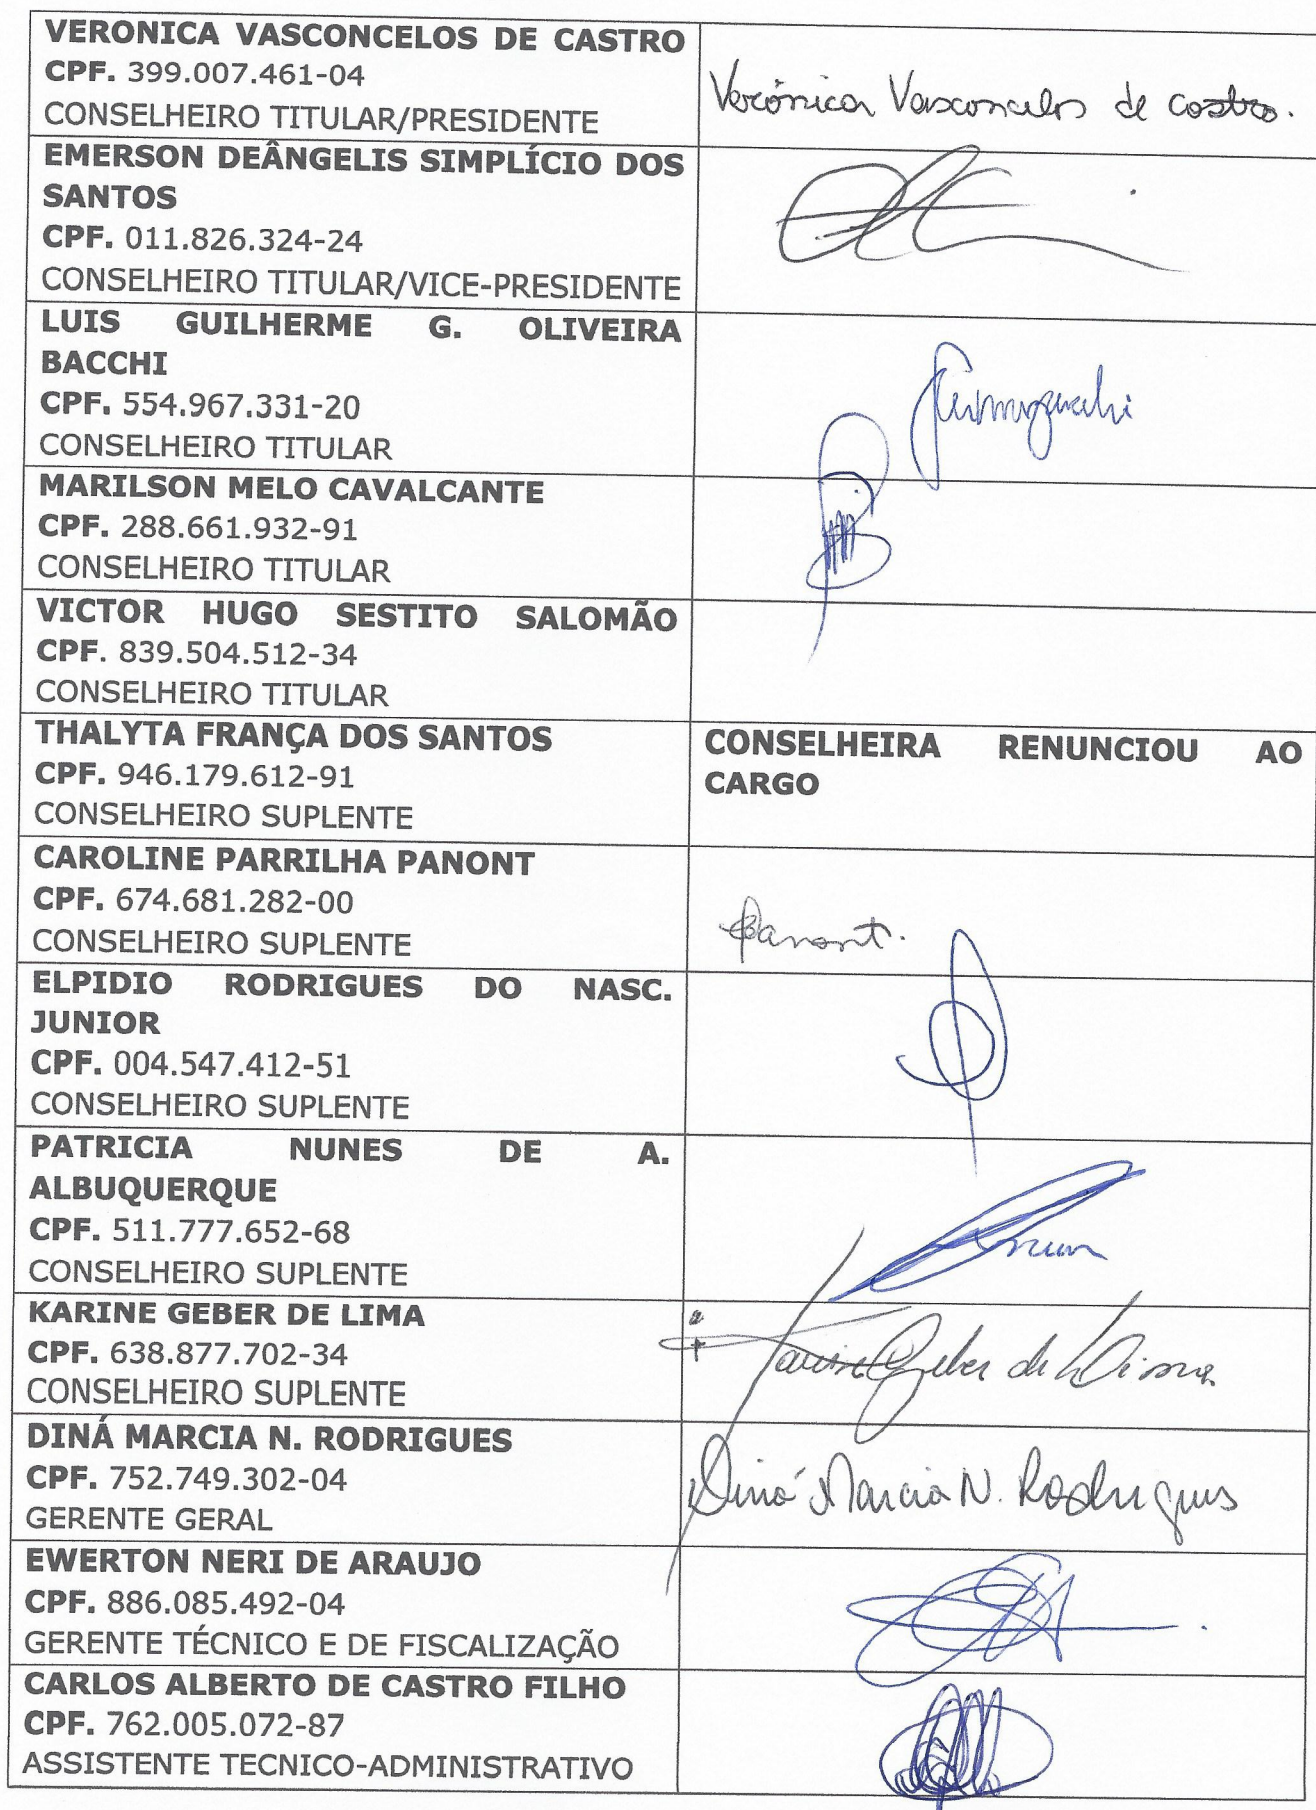 VERONICA VASCONCELOS DE CASTRO
CPF. 399.007.461-04
CONSELHEIRO TITULAR/PRESIDENTE
Verônica Vasconcelos de Castro.
EMERSON DEÂNGELIS SIMPLÍCIO DOS
SANTOS
CPF. 011.826.324-24
CONSELHEIRO TITULAR/VICE-PRESIDENTE
LUIS GUILHERME G. OLIVEIRA
BACCHI
CPF. 554.967.331-20
CONSELHEIRO TITULAR
MARILSON MELO CAVALCANTE
CPF. 288.661.932-91
CONSELHEIRO TITULAR
VICTOR HUGO SESTITO SALOMÃO
CPF. 839.504.512-34
CONSELHEIRO TITULAR
THALYTA FRANÇA DOS SANTOS
CPF. 946.179.612-91
CONSELHEIRO SUPLENTE
CONSELHEIRA RENUNCIOU AO
CARGO
CAROLINE PARRILHA PANONT
CPF. 674.681.282-00
CONSELHEIRO SUPLENTE
Panont.
ELPIDIO RODRIGUES DO NASC.
JUNIOR
CPF. 004.547.412-51
CONSELHEIRO SUPLENTE
PATRICIA NUNES DE A.
ALBUQUERQUE
CPF. 511.777.652-68
CONSELHEIRO SUPLENTE
KARINE GEBER DE LIMA
CPF. 638.877.702-34
CONSELHEIRO SUPLENTE
Karine Geber de Lima
DINÁ MARCIA N. RODRIGUES
CPF. 752.749.302-04
GERENTE GERAL
Diná Marcia N. Rodrigues
EWERTON NERI DE ARAUJO
CPF. 886.085.492-04
GERENTE TÉCNICO E DE FISCALIZAÇÃO
CARLOS ALBERTO DE CASTRO FILHO
CPF. 762.005.072-87
ASSISTENTE TECNICO-ADMINISTRATIVO